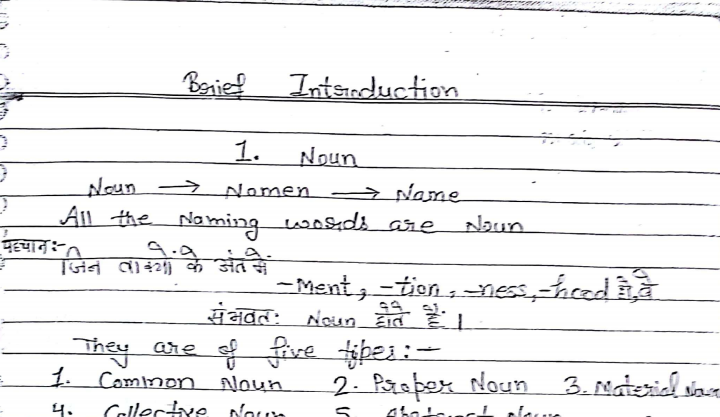 Brief Introduction
1. Noun
Noun → Nomen → Name
All the Naming words are Noun
पहचान:- जिन वाक्यो के अंत में
-ment, -tion, -ness, -hood हो, वे
संभवत: Noun होते हैं ।
They are of five types:-
1. Common Noun 2. Proper Noun 3. Material Noun
4. Collective Noun 5. Abstract Noun